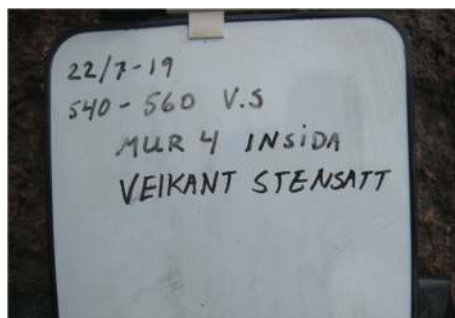 22/7-19
540-560 V.S
MUR 4 INSiDA
VEIKANT STENSATT